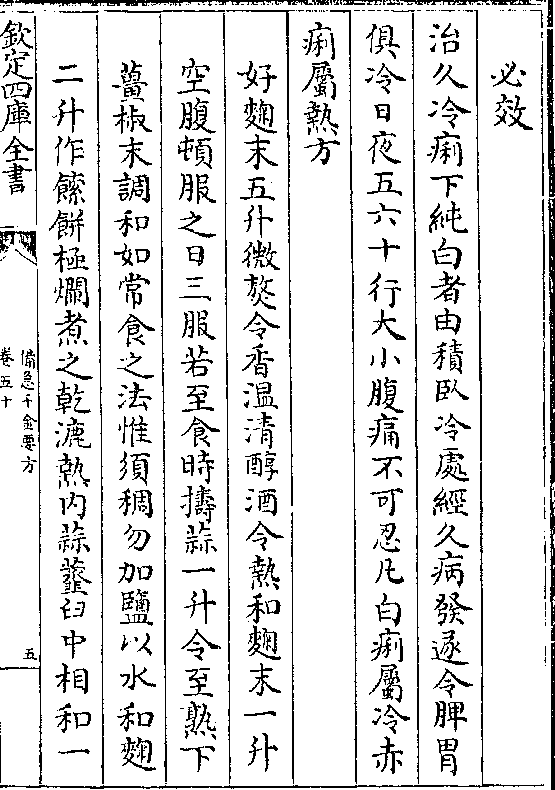 必效
治久冷痢下純白者由積臥冷處經久病發遂令脾胃
俱冷日夜五六十行大小腹痛不可忍凡白痢屬冷赤
痢屬熱方
好麴末五升微熬令香温清醇酒令熱和麴末一升
空腹頓服之日三服若至食時擣蒜一升令至熟下
薑椒末調和如常食之法惟須稠勿加鹽以水和麴
二升作䭔餅極爛煮之乾漉熱内蒜虀臼中相和一
欽定四庫全書
備急千金要方
卷五十
五